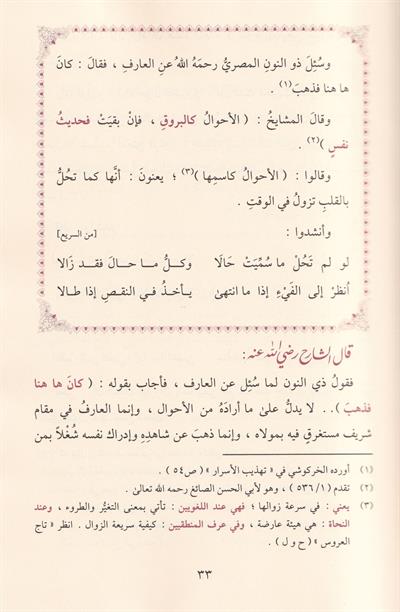 وسُئِلَ ذو النونِ المصريُّ رحمَهُ اللهُ عنِ العارفِ ، فقالَ : كانَ
ها هنا فذهبَ(١) .
وقالَ المشايخُ : ( الأحوالُ كالبروقِ ، فإنْ بقيَتْ فحديثُ
نفسٍ )(٢) .
وقالوا : ( الأحوالُ كاسمِها )(٣) ؛ يعنونَ : أنَّها كما تحُلُّ
بالقلبِ تزولُ في الوقتِ .
وأنشدوا : [من السريع]
لو لم تَحُلْ ما سُمِّيَتْ حَالَا وكلُّ ما حالَ فقد زَالا
أنظرْ إلى الفَيْءِ إذا ما انتهىٰ يأخذُ في النقصِ إذا طالا
قال الشارح رضي الله عنه :
فقولُ ذي النون لما سُئِل عن العارف ، فأجاب بقوله : ( كانَ ها هنا
فذهبَ ) . . لا يدلُّ علىٰ ما أرادَهُ من الأحوال ، وإنما العارفُ في مقام
شريف مستغرقٍ فيه بمولاه ، وإنما ذهب عن شاهدِهِ وإدراك نفسه شُغْلاً بمن
(١) أورده الخركوشي في « تهذيب الأسرار » ( ص٥٤ ) .
(٢) تقدم ( ١/ ٥٣٦ ) ، وهو لأبي الحسن الصائغ رحمه الله تعالىٰ .
(٣) يعني : في سرعة زوالها ؛ فهي عند اللغويين : تأتي بمعنى التغيُّر والطروء ، وعند
النحاة : هي هيئة عارضة ، وفي عرف المنطقيين : كيفية سريعة الزوال . انظر « تاج
العروس » ( ح و ل ) .
٣٣